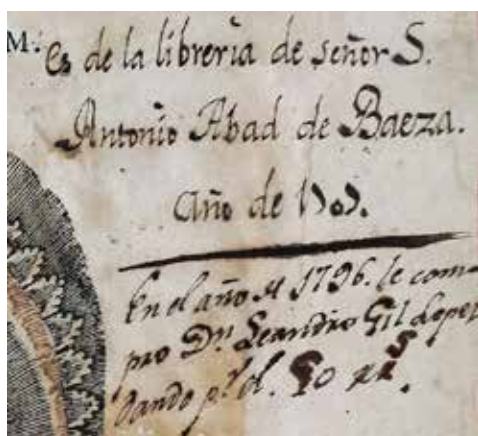 M.
Es de la librería de señor S.
Antonio Abad de Baeza.
Año de 1707.
En el año de 1796. le com-
pro Dn. Leandro Gil Lopez
dando pr. el. 50 rrs.